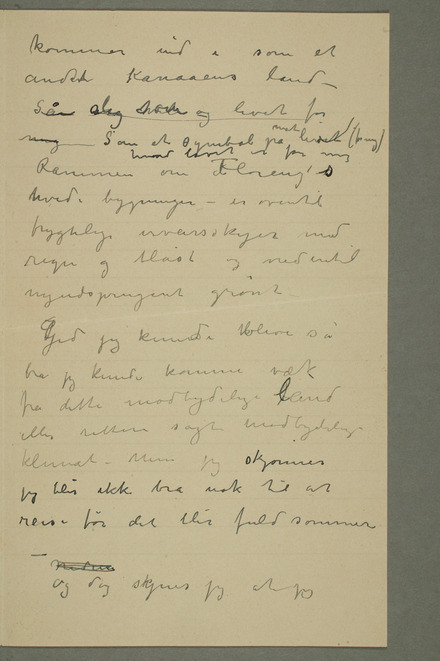 kommer ind i som et
andet Kanaaens land –
Så slog og livet for
mig – Som et symbol på livet (for mig)
hvad livet er for mig
Rammen om Florenz's
hvide bygninger – er oventil
frygtelige uveirsskyer med
regn og blåst og nedentil
nyudsprungent grönt –
Gid jeg kunde blive så
bra jeg kunde komme væk
fra dette modbydelige land
eller rettere sagt modbydelige
klimat – Men jeg skjønner
jeg blir ikke bra nok til at
reise før det blir fuld sommer
–
og dog synes jeg at jeg